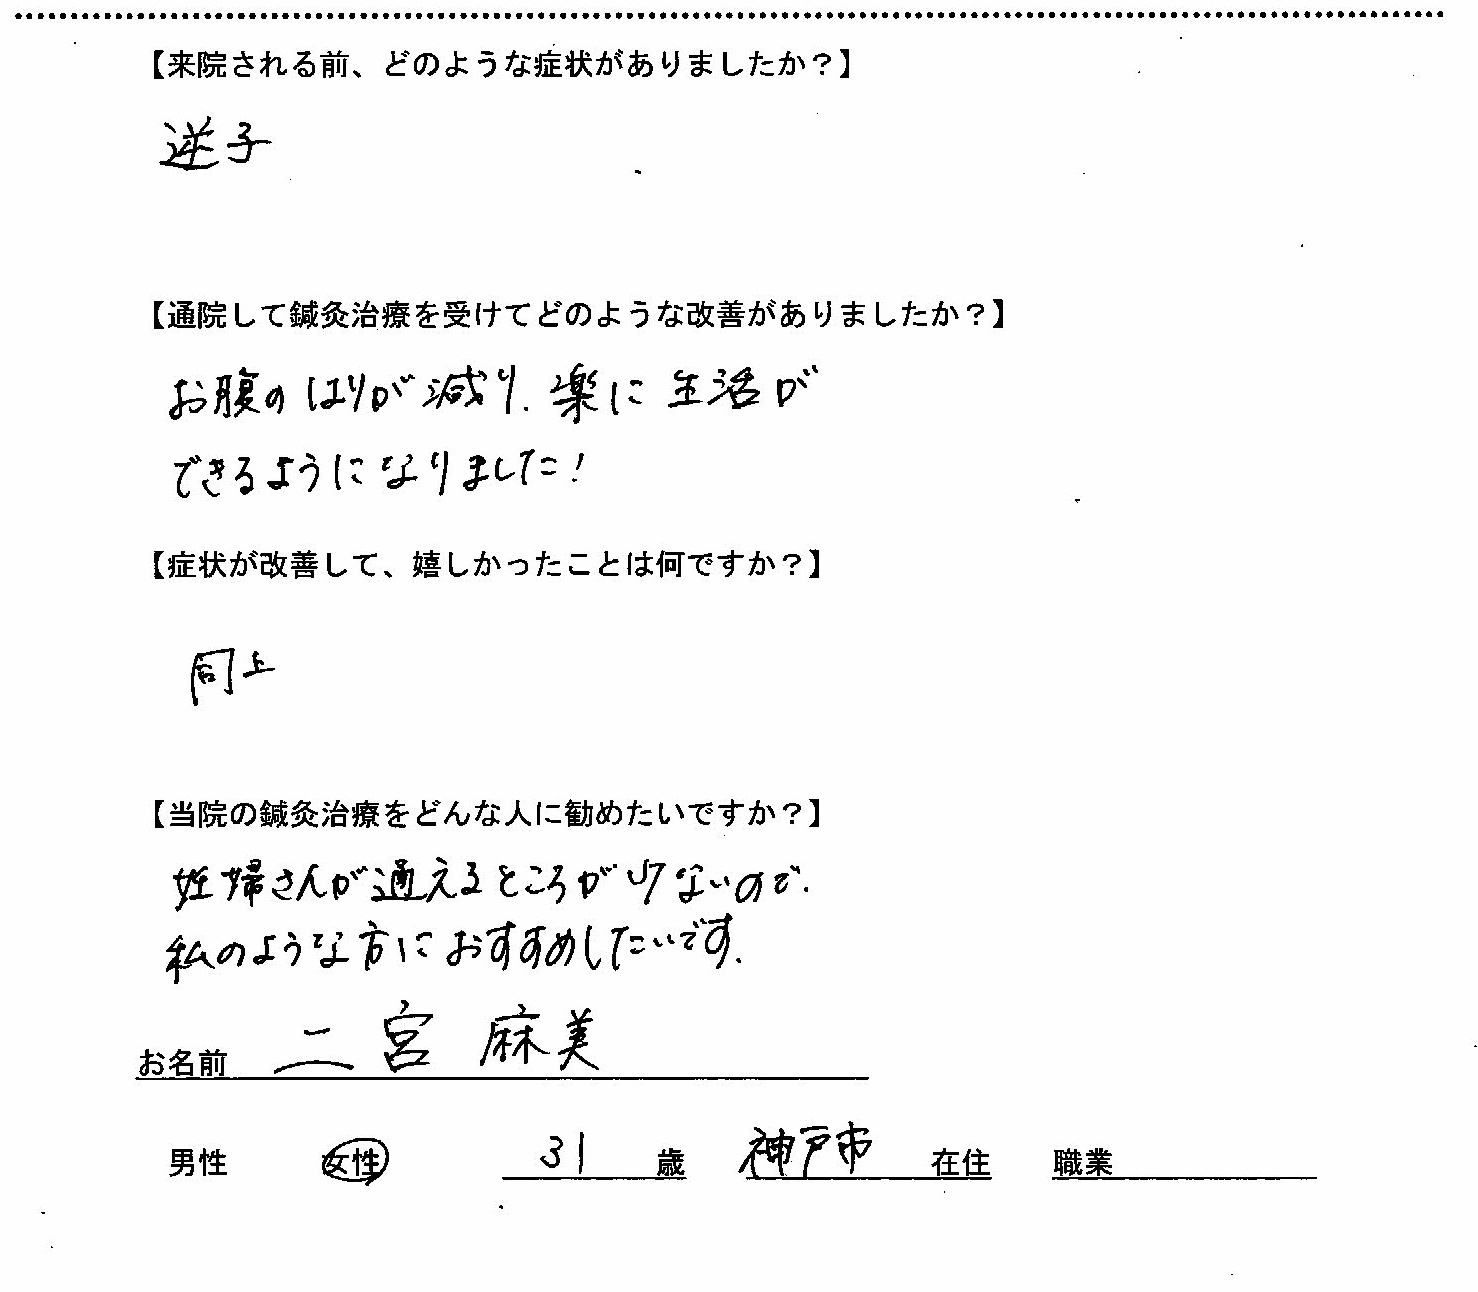 【来院される前、どのような症状がありましたか？】
逆子
【通院して鍼灸治療を受けてどのような改善がありましたか？】
お腹のはりが減り、楽に生活が
できるようになりました！
【症状が改善して、嬉しかったことは何ですか？】
同上
【当院の鍼灸治療をどんな人に勧めたいですか？】
妊婦さんが通えるところが少ないので、
私のような方におすすめしたいです。
お名前 二宮 麻美
男性 女性 31 歳 神戸市 在住 職業